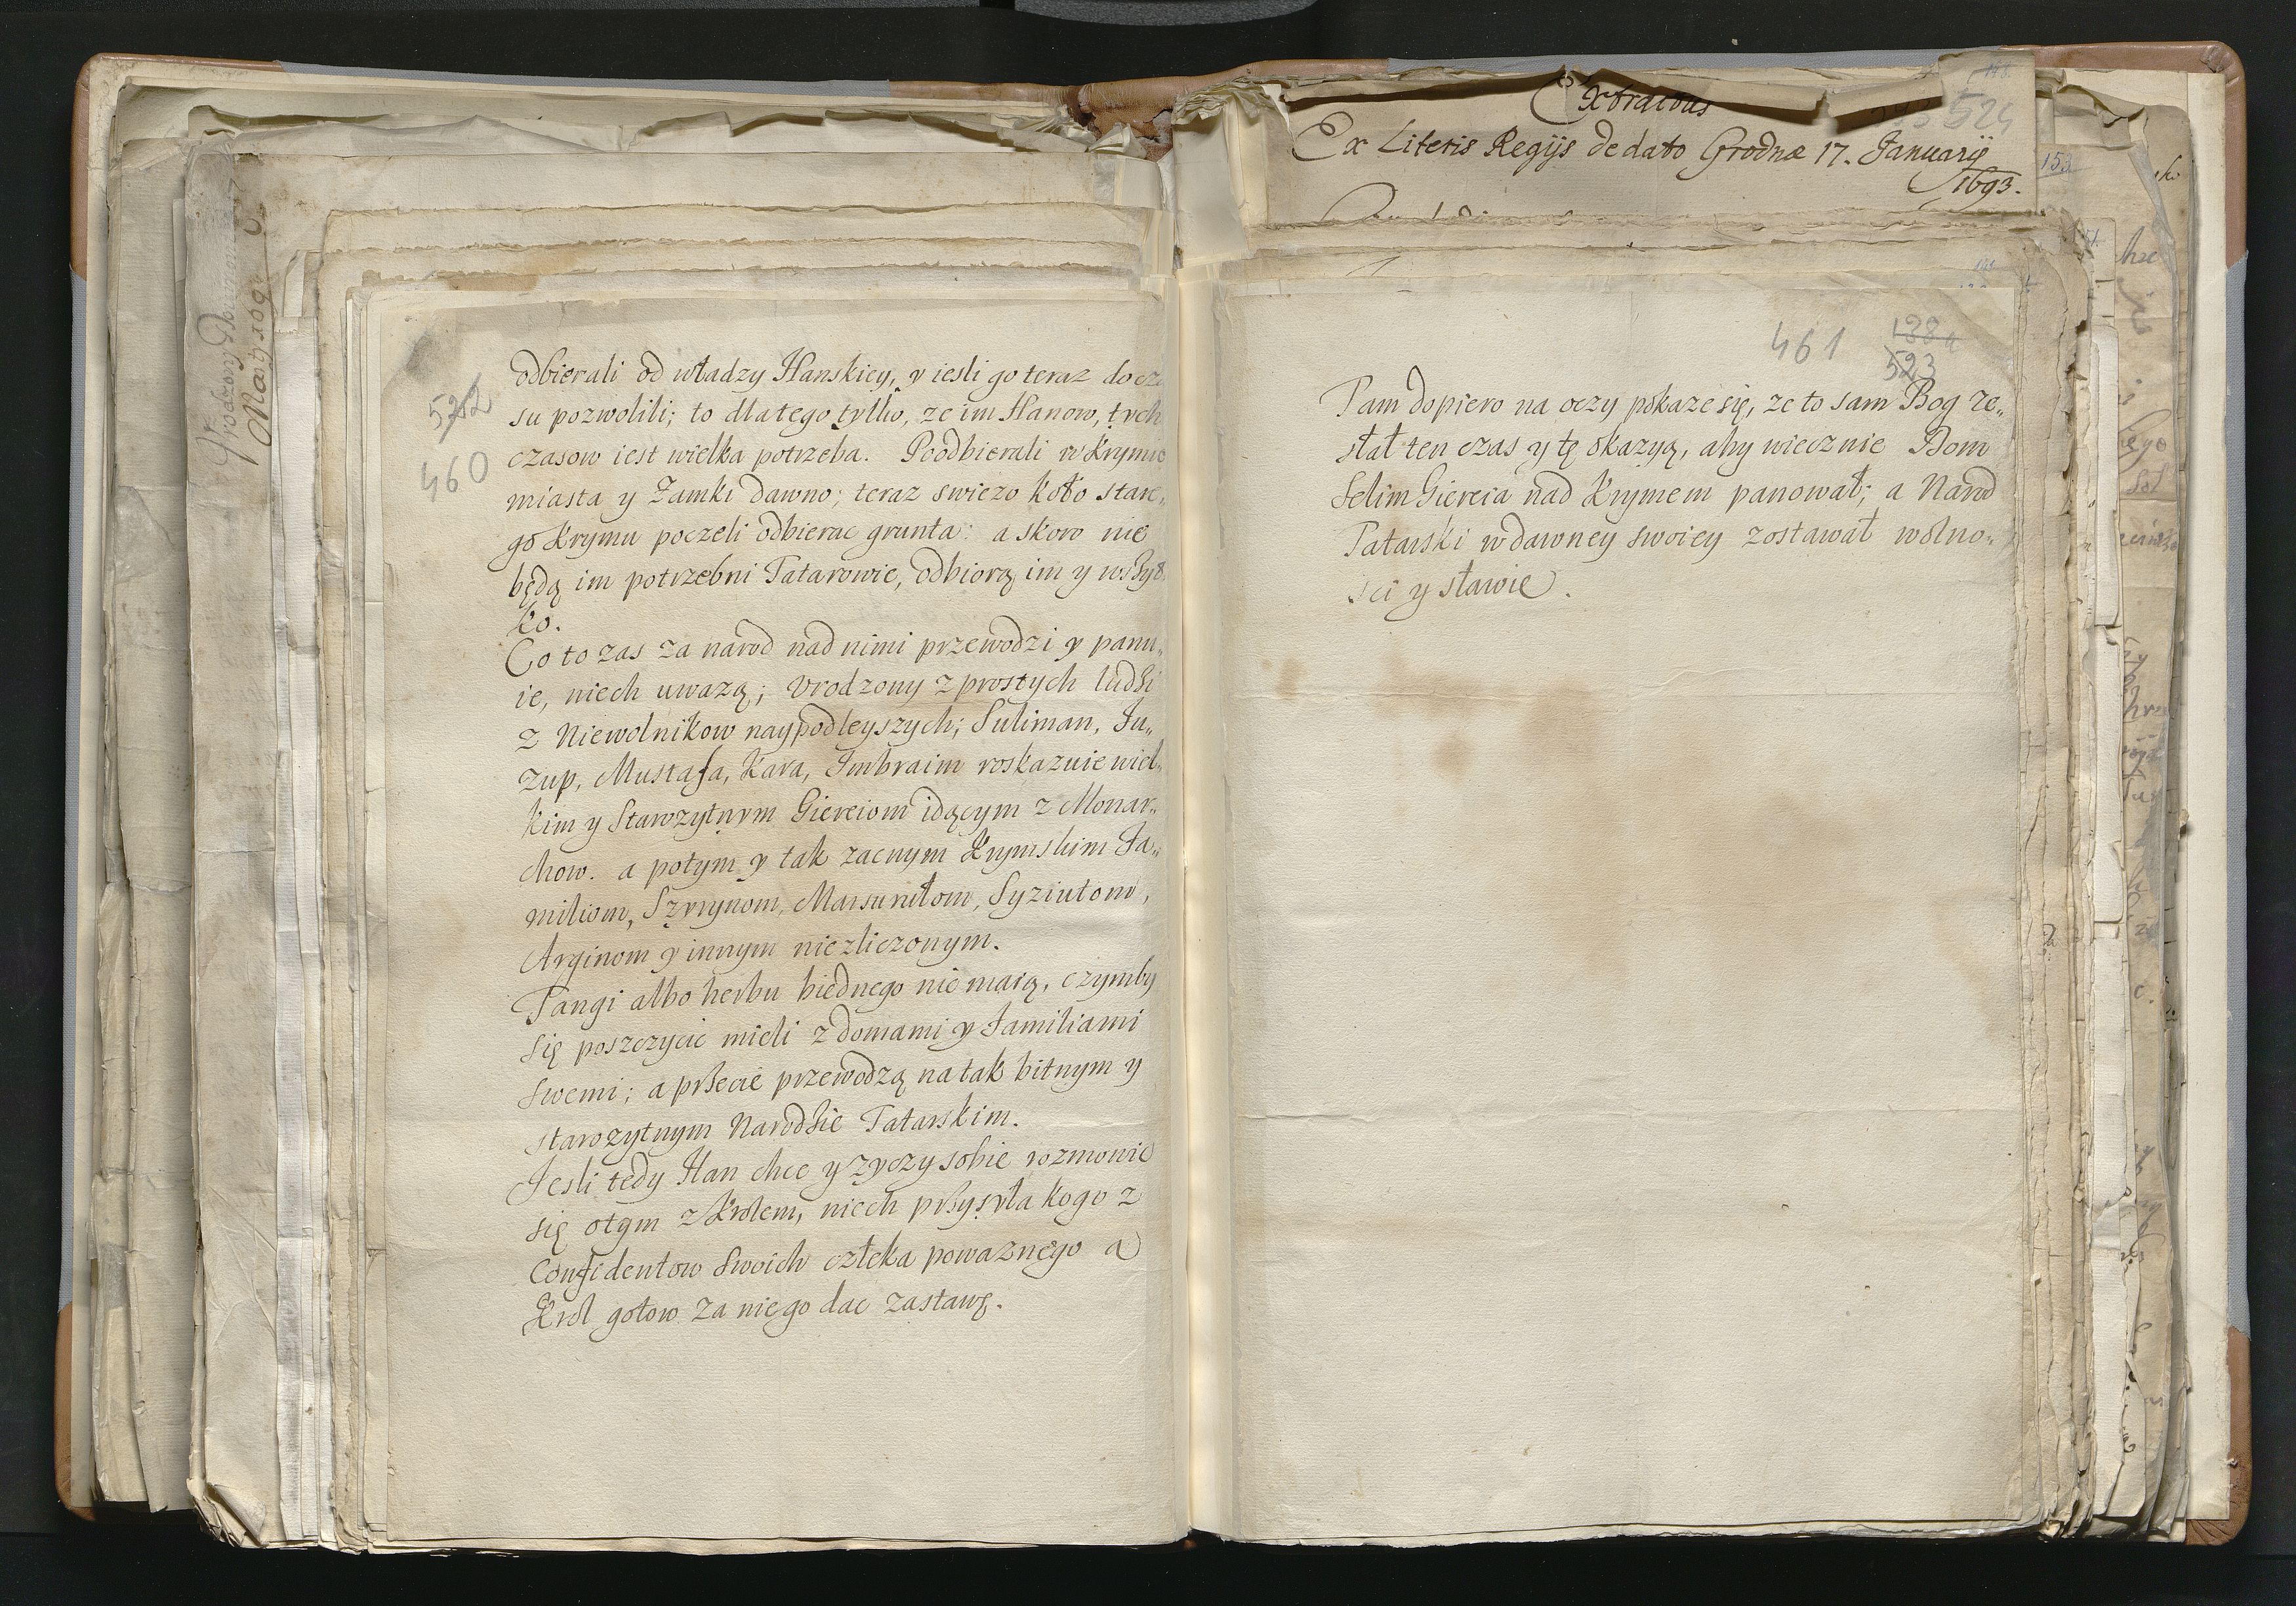 522
460
odbierali od władzy Hanskiey, y iesli go teraz do cza
su pozwolili; to dlatego tylko, ze im Hanow, tych
czasow iest wielka potrzeba. Poodbierali w Krymie
miasta y Zamki dawno; teraz swiezo koło stare„
go Krymu poczeli odbierac grunta: a skoro nie
będą im potrzebni Tatarowie, odbiorą im y wszyst
ko.
Co to zas za narod nad nimi przewodzi y panu„
ie, niech uwazą; Vrodzony z prostych ludzi
z Niewolnikow naypodleyszych; Suliman, Ju„
zup, Mustafa, Kara, Imbraim roskazuie wiel„
kim y Starozytnym Giereiom idącym z Monar„
chow. a potym y tak zacnym Krymskim Fa„
miliom, Szyrynom, Mansurułom, Syziutom,
Arginom y innym niezliczonym.
Tangi albo herbu biednego nie maią, czymby
się poszczycic mieli z domami y Familiami
swemi; a przecie przewodzą na tak bitnym y
starozytnym Narodzie Tatarskim.
Jesli tedy Han chce y zyczy sobie rozmowic
się otym z Krolem, niech przysyła kogo z
Confidentow swoich człeka powaznego a
Krol gotow za niego dac zastawę.
Extractus
524
Ex Literis Regijs de dato Grodnæ 17. Januarij
1693.
461
523
Tam dopiero na oczy pokaze się, ze to sam Bog ze„
słał ten czas y tę okazyą, aby wiecznie Dom
Selim Giereia nad Krymem panował; a Narod
Tatarski w dawney swoiey zostawał wolno„
sci y sławie.